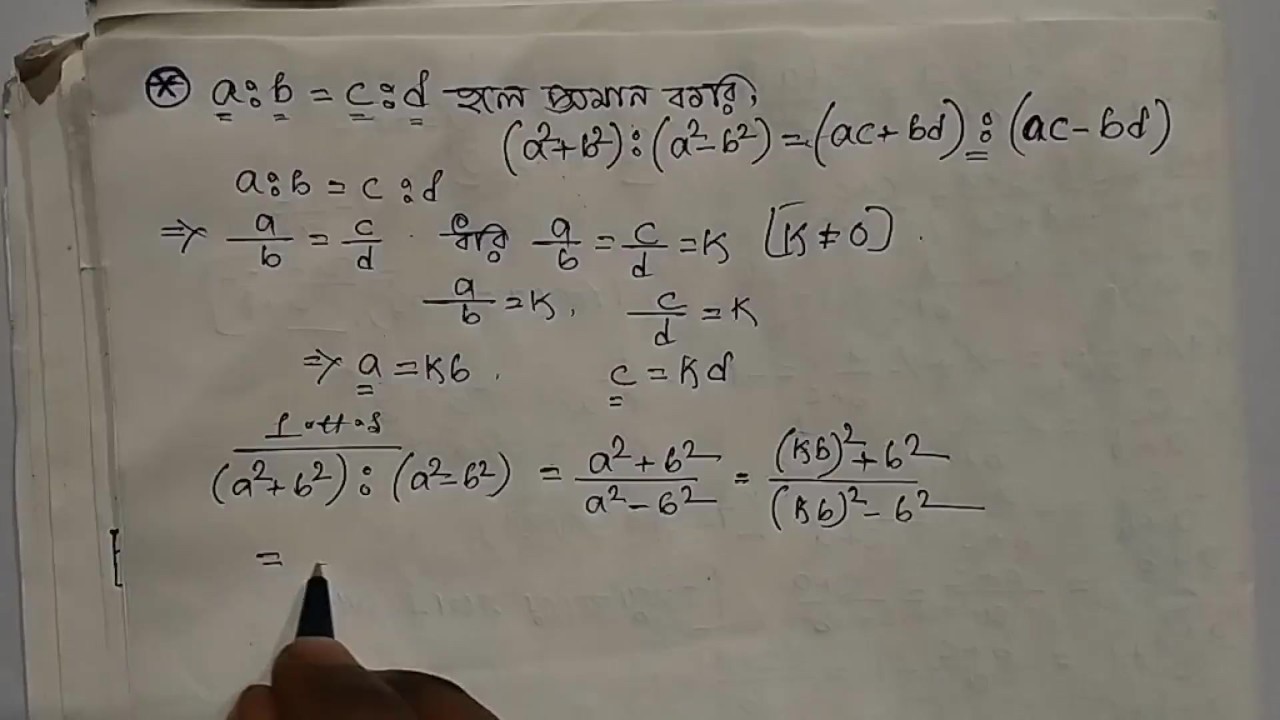 * a:b = c:d হলে প্রমাণ করি,
(a²+b²):(a²-b²) = (ac+bd):(ac-bd)
a:b = c:d
⇒ a/b = c/d . ধরি a/b = c/d = K [K ≠ 0] .
a/b = K, c/d = K
⇒ a = Kb . c = Kd
(a²+b²):(a²-b²) = a²+b²/a²-b² = (Kb)²+b²/(Kb)²-b²
=